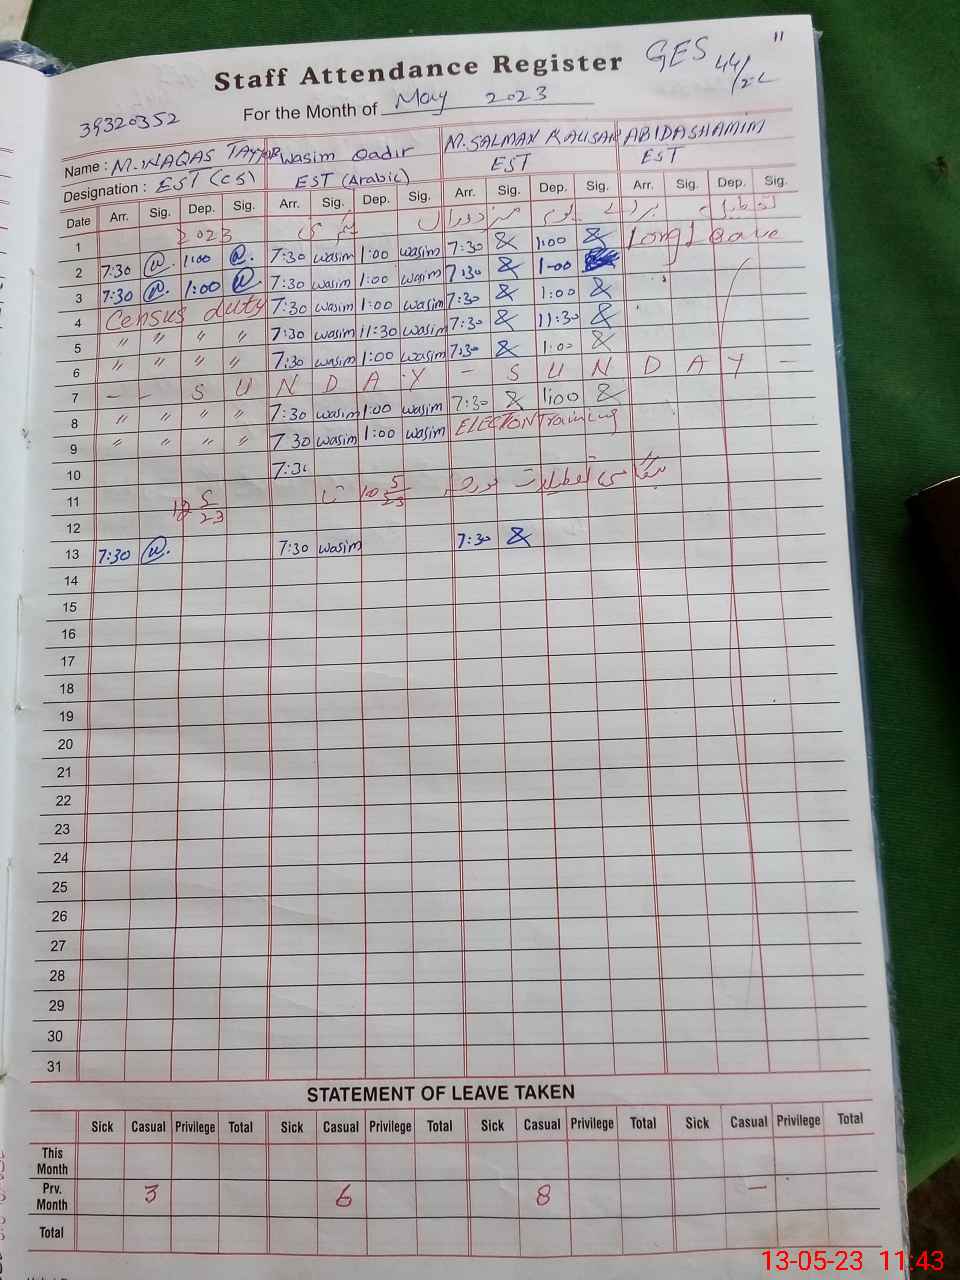 "
Staff Attendance Register GES 44/2L
39320352 For the Month of May 2023
Name : M. WAQAS TAYYAB Wasim Qadir M. SALMAN KAUSAR ABIDA SHAMIM
Designation : EST (CS) EST (Arabic) EST EST
Date Arr. Sig. Dep. Sig. Arr. Sig. Dep. Sig. Arr. Sig. Dep. Sig. Arr. Sig. Dep. Sig.
1 2023
2 7:30 1:00 7:30 wasim 1:00 wasim 7:30 1:00 Long Leave
3 7:30 1:00 7:30 wasim 1:00 wasim 7:30 1-00
4 Census duty 7:30 wasim 1:00 wasim 7:30 1:00
5 " " " " 7:30 wasim 11:30 wasim 7:30 11:30
6 " " " " 7:30 wasim 1:00 wasim 7:30 1:00
7 - - S U N D A Y - S U N D A Y -
8 " " " " 7:30 wasim 1:00 wasim 7:30 1:00
9 " " " " 7 30 wasim 1:00 wasim ELECTON Training
10 7:30
11 تعطیلات
12
13 7:30 7:30 wasim 7:30
14
15
16
17
18
19
20
21
22
23
24
25
26
27
28
29
30
31
STATEMENT OF LEAVE TAKEN
Sick Casual Privilege Total Sick Casual Privilege Total Sick Casual Privilege Total Sick Casual Privilege Total
This Month
Prv. Month 3 6 8 –
Total
13-05-23 11:43